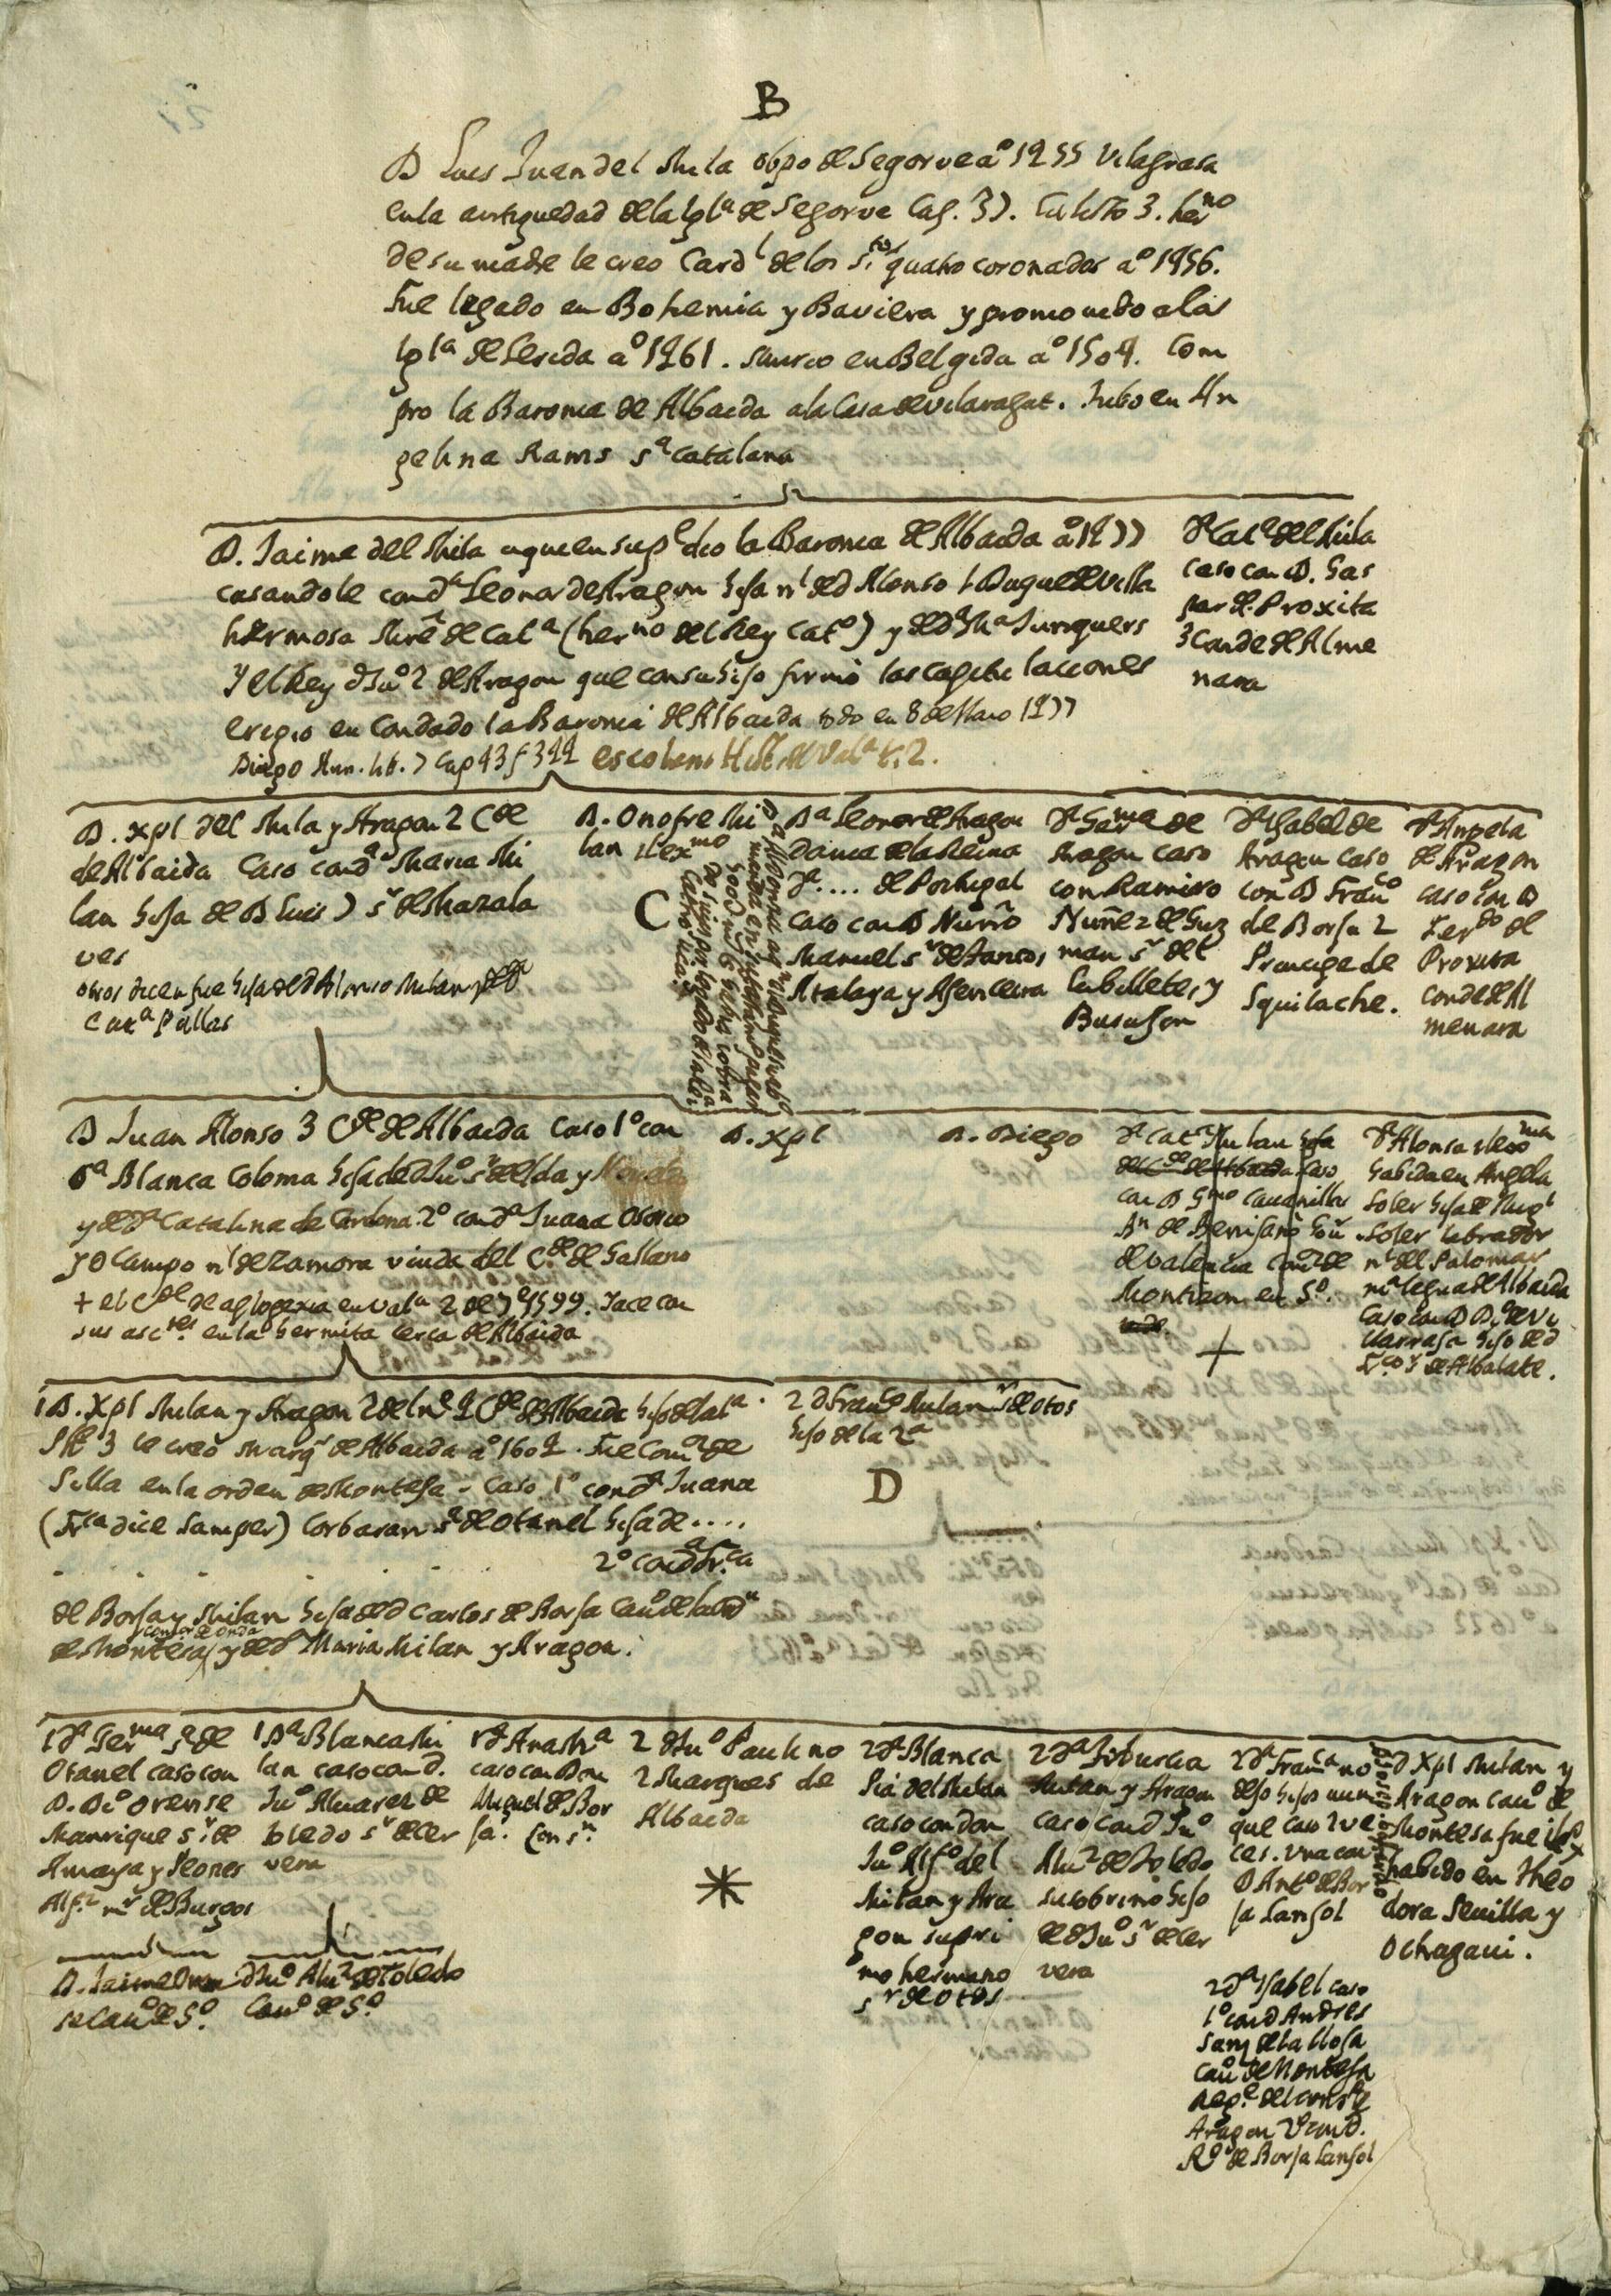 B
D Luis Juan del Mila obpo de Segorve aº 1455 Vilagrasa
en la antiguedad de la Igla de Segorve Cap. 37. Calisto 3. herno
de su madre le creo Cardl de los Stos quatro coronados aº 1456.
Fue legado en Bohemia y Baviera y promovido a la
Igla de Lerida aº 1461. Murio en Belgida aº 1504. Com
pro la Baronia de Albaida a la Casa de Vilaragut. Tubo en An
gelina Rams sa catalana
D. Jaime del Mila a quien su pe dio la Baronia de Albaida aº 1477
casandole con da Leonor de Aragon hija nl de d Alonso 1 Duque de Villa
hermosa Mre de Cala (herno del Rey Catº) y de da Ma Junquers
y el Rey d Juº 2 de Aragon que con su hijo firmò las capitulaciones
erigio en Condado la Baronia de Albaida todo en 8 de Março 1477
Diago Ann. lib. 7 cap 43 f 344 escolano Hist de Vala t. 2.
da Cata del Mila
caso con D. Gas
par de Proxita
3 Conde de Alme
nara
D. Xpl del Mila y Aragon 2 Cde
de Albaida Caso con da Maria Mi
lan hija de D Luis 7 sr de Mazala
ves
otros dicen fue hija de d Alonso Milan y de da
Cata Pallas
D. Onofre Mi
lan
C
Da Leonor de Aragon
Dama de la Reina
da.... de Portugal
Caso con D Nuño
Manuel sr de
Atalaya y
da Germa de
Aragon caso
con Ramiro
Nuñez de Guz
man sr de
y
da Isabel de
Aragon caso
con D Franco
de Borja 2
Principe de
Squilache.
da Angela
de Aragon
caso con D
Ferdo de
Proxita
Conde de Al
menara
D Juan Alonso 3 Cde de Albaida Caso 1º con
da Blanca Coloma hija de d Juº sr de Elda y
y de da Catalina de Cardona. 2º con da Juana Osorio
y O Campo nl de Zamora viuda del Cde de
+ el Cde de aploplexia en Vala 2 de 7e 1599. Jace con
sus ascres en la hermita cerca de Albaida
D. Xpl
D. Diego
da Cata Milan hija
del Cde de Albaida Caso
con D Gmo Cavanilles
de Benisano Gor
de Valencia Comr de
Montizon en Sº.
da Alonsa
habida en Angela
Soler hija de Migl
Soler labrador
nl del Palomar
legua de Albaida
Caso con D Dº de Vi
llarrasa hijo de d
Frco sr de Albalate.
1 D. Xpl Milan y Aragon 2 del ne 4 Cde de Albaida hijo de la 1a.
Phe 3 le creo Marqs de Albaida aº 1604. Fue Comor de
Silla en la orden de Montesa. Caso 1º con da Juana
(Frca dice Samper) Corbaran sa de Otanel hija de....
2º con da Frca
de Borja y Milan hija de d Carlos de Borja Cavº de la orden
de Montesa Comor de Onda y de da Maria Milan y Aragon.
2 d Franco Milan sr de Otos
hijo de la 2a
D
1 da Germa sa de
Otanel caso con
D. Dº Orense
Manrique sr de
Amaya y Peones
Alfz mr de Burgos
1 Da Blanca Mi
lan caso con d.
Juº Alvarez de
Toledo sr de Cer
vera
1 da Ana Ma
caso con Don
Miguel de Bor
ja. Con sn.
2 d Juº Paulino
2 Marques de
Albaida
2 da Blanca
Pia del Milan
caso con don
Juº Alfº del
Milan y Ara
gon su pri
mo hermano
sr de Otos
2 da Tiburcia
Milan y Aragon
caso con d Juº
Alvz de Toledo
su sobrino hijo
de d Juº sr de Cer
vera
2 da Franca no
dejo hijos aun
que caso 2 ve
ces. Una con
D Antº de Bor
ja Lansol
d Xpl Milan y
Aragon cavº de
Montesa fue
habido en Theo
dora Sevilla y
Ochagavi.
D. Jaime Oren
se Cavº de Sº.
d Juº Alvz de Toledo
Cavº de Sº
2 da Isabel caso
1º con d Andres
Sanz de la Llosa
Cavº de Montesa
Rege del consº de
Aragon 2º con d.
Rº de Borja Lansol